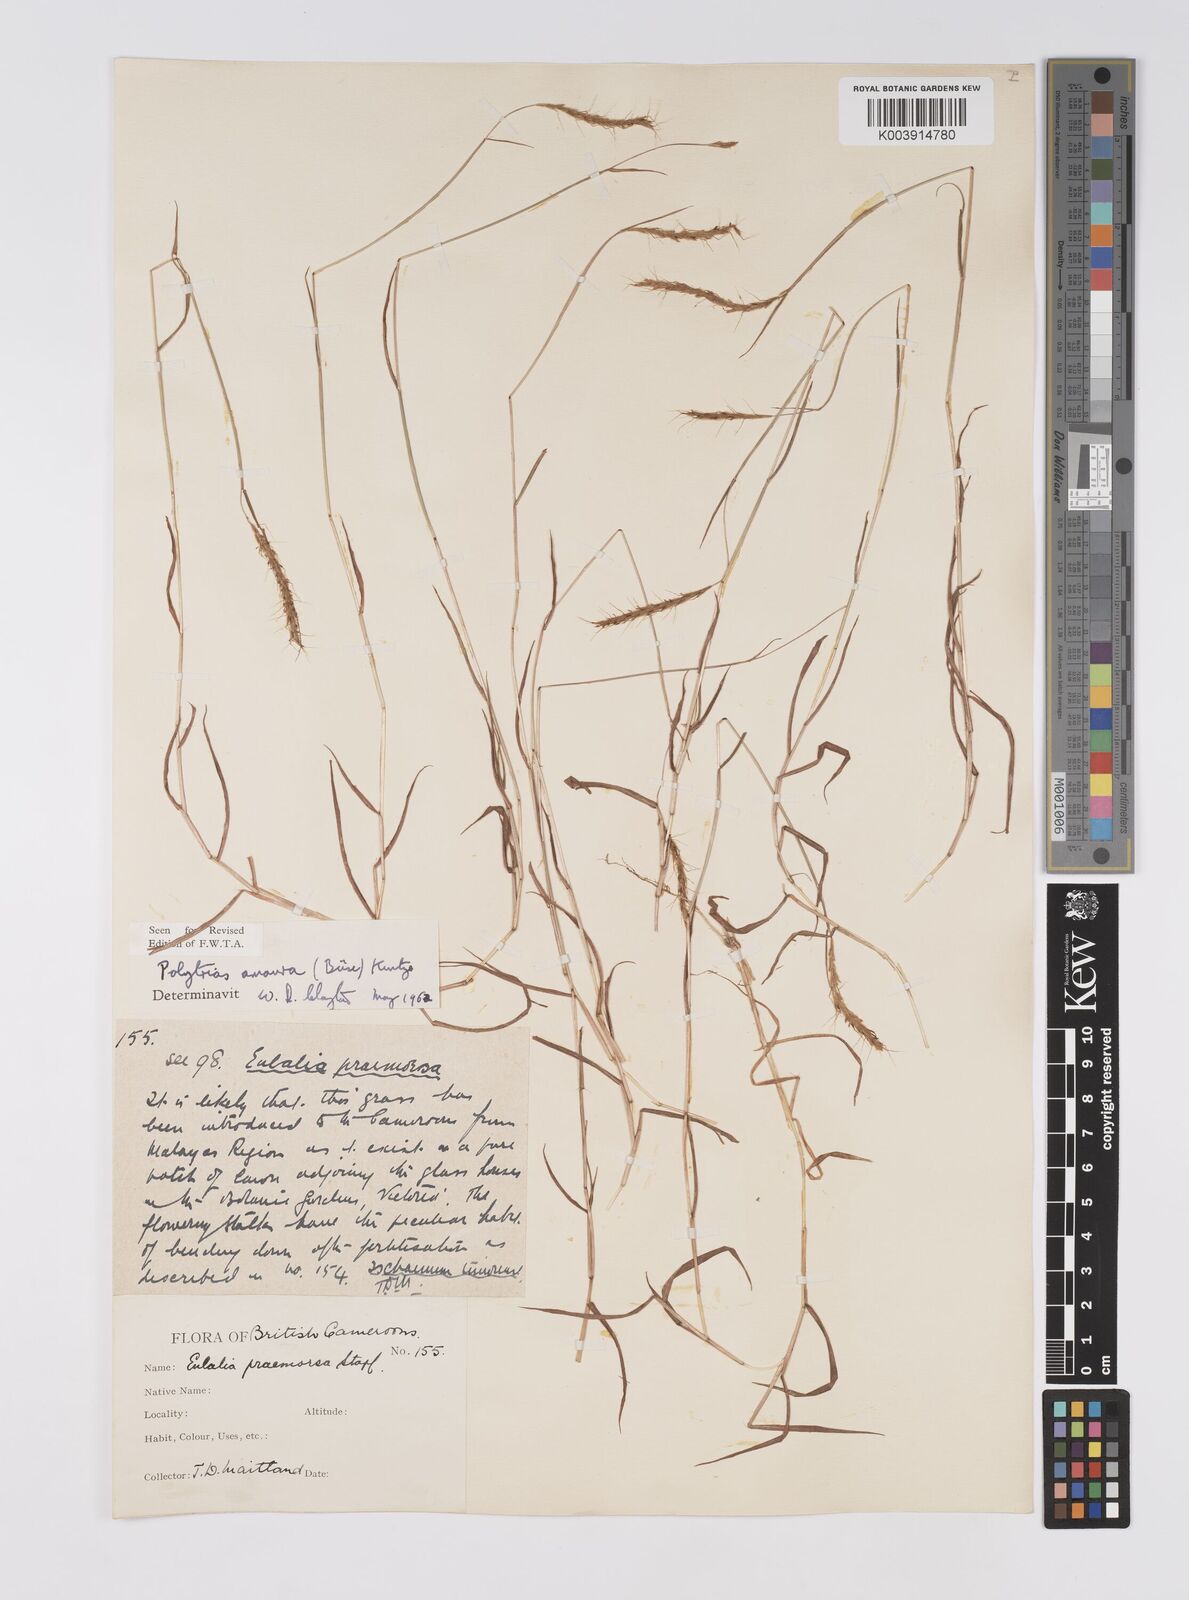 ROYAL BOTANIC GARDENS KEW
K003914780
Seen for Revised
Edition of F.W.T.A.
Polytrias amaura (Büse) Kuntze
Determinavit W. D. Clayton May 1962
155.
see 98. Eulalia praemorsa
It is likely that this grass has
been introduced to the Cameroons from
Malayan Region as it exists as a pure
patch of lawn adjoining the glass houses
in the Botanic Gardens, Victoria. The
flowering stalks have the peculiar habit
of bending down after fertilisation as
described in no. 154. Ischaemum timorense.
T.D.M.
FLORA OF British Cameroons.
No. 155.
Name: Eulalia praemorsa Stapf.
Native Name:
Locality: Altitude:
Habit, Colour, Uses, etc.:
Collector: T.D. Maitland Date:
inches
Don Williams
centimeters
M001006
Kew
Royal Botanic Gardens
copyright reserved
0 1 2 3 4 5 6 7 8 9 10
cm